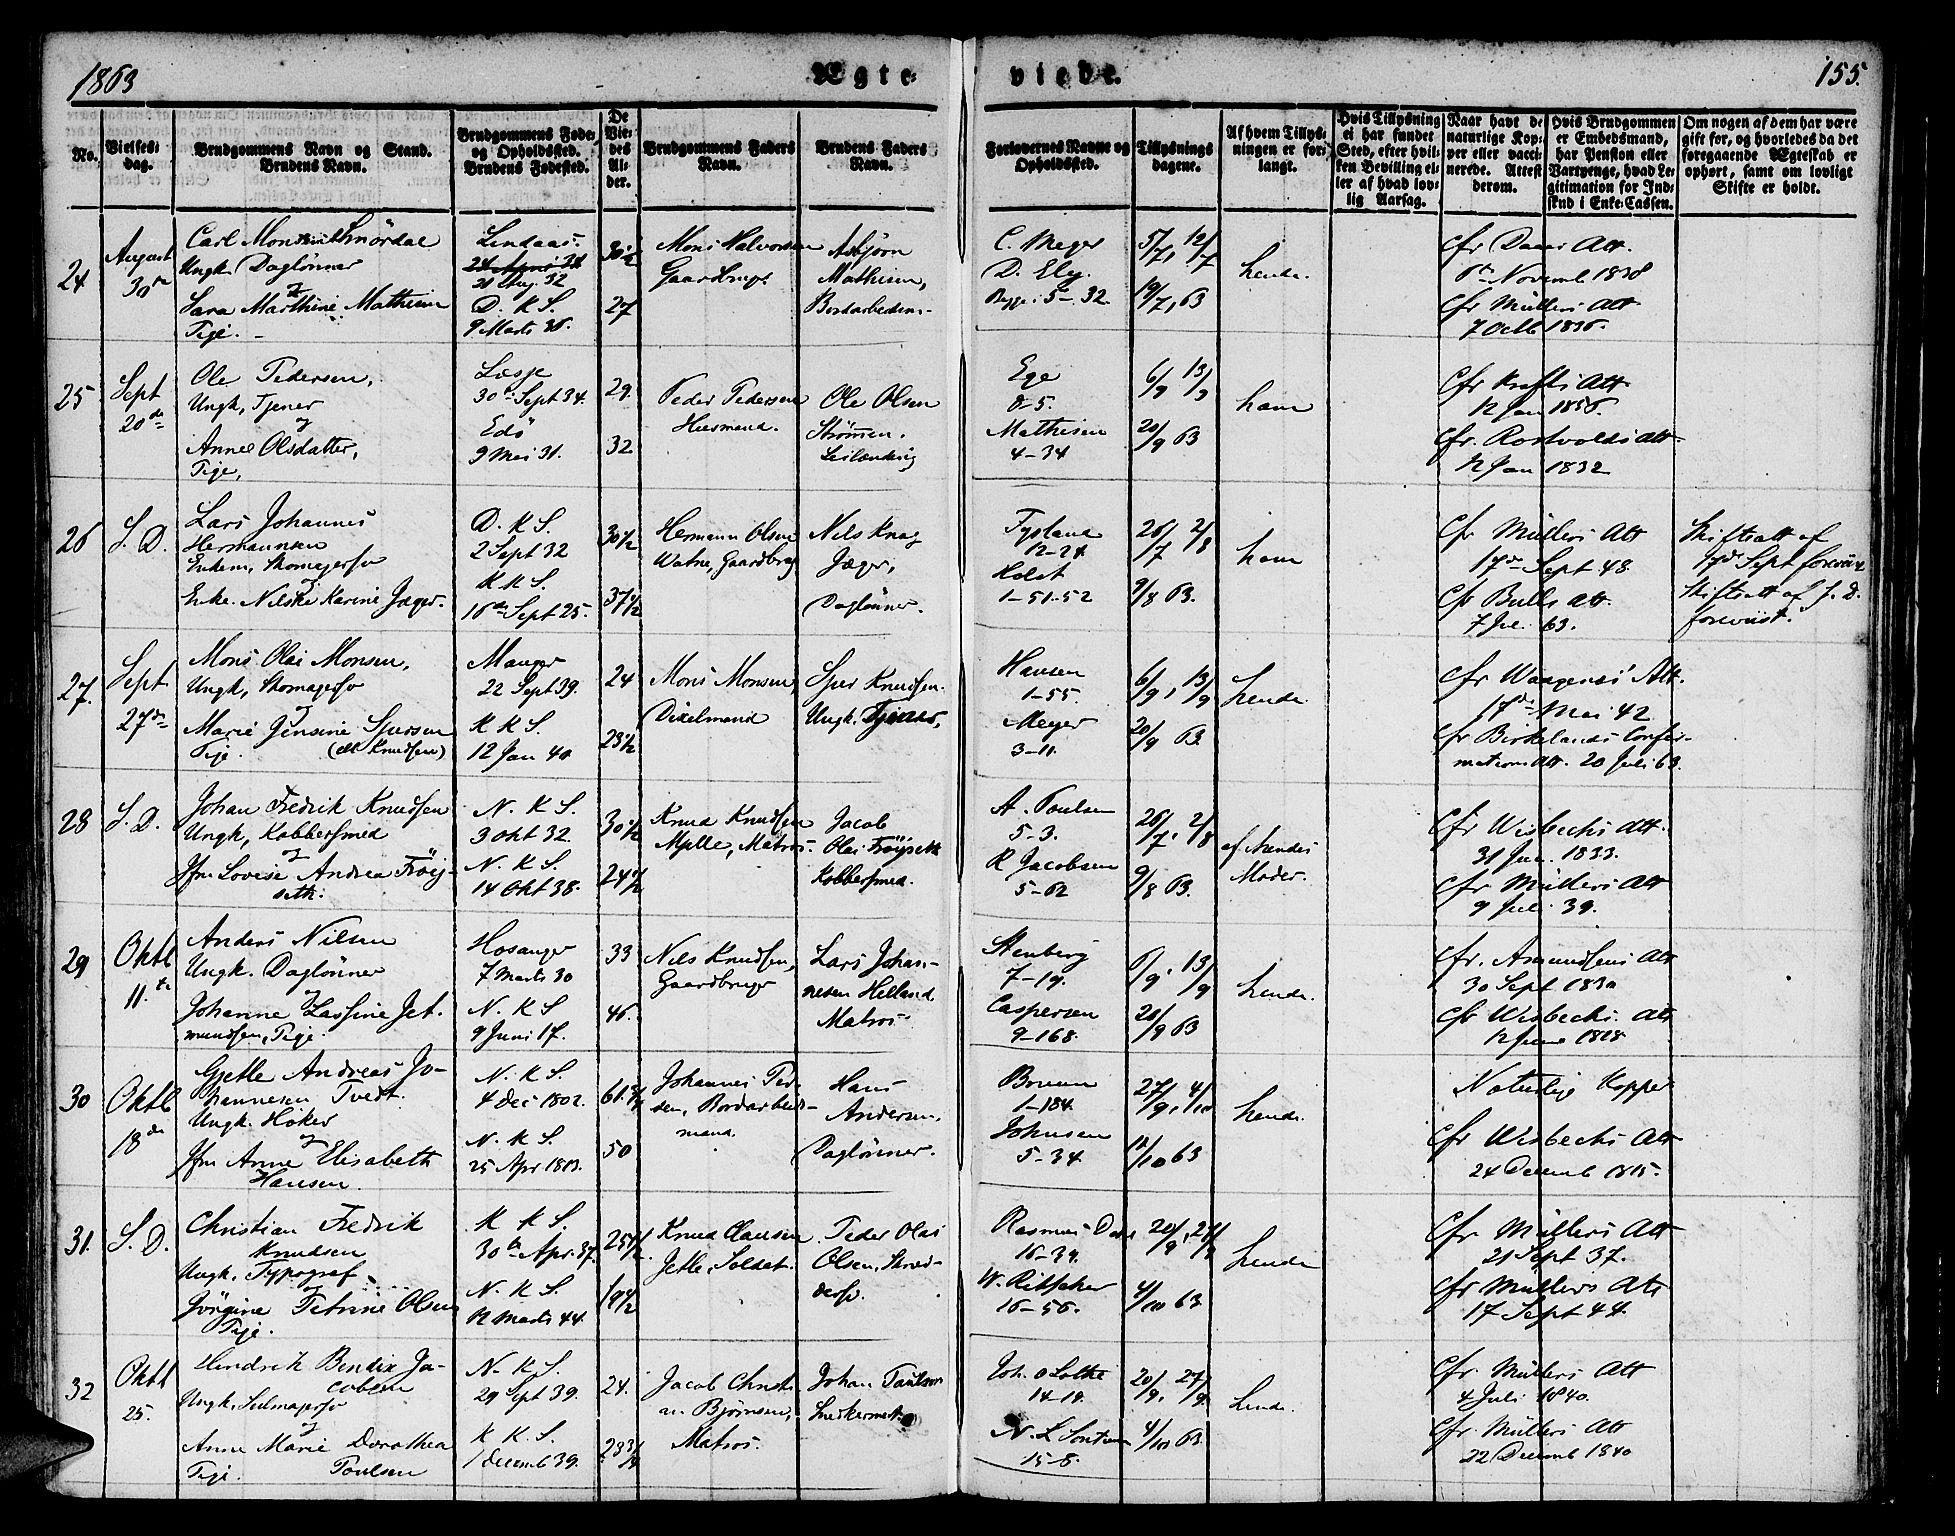 1863
Ægte-
viede.
155.
No.
Vielses-
dag.
Brudgommens Navn og Stand.
Brudens Navn.
Brudgommens Føde-
og Opholdssted.
Brudens Fødested.
De
Vie-
des
Al-
der.
Brudgommens Faders
Navn.
Brudens Faders
Navn.
Forlovernes Navne og
Opholdssted.
Tillysnings
dagene.
Af hvem Tillys-
ningen er for-
langt.
Hvis Tillysning
ei har fundet
Sted, efter hvil-
ken Bevilling el-
ler af hvad lov-
lig Aarsag.
Naar havt de
naturlige Kop-
per eller vacci-
nerede. Attest
derom.
Hvis Brudgommen
er Embedsmand,
har Pension eller
Vartpenge, hvad Le-
gitimation for Ind-
skud i Enke-Cassen.
Om nogen af dem har være
gift før, og hvorledes da det
foregaaende Ægteskab er
ophørt, samt om lovligt
Skifte er holdt.
24
August
30te
Carl Monsen Smördal
Ungk, Daglønner
Sara Marthine Mathisen
Pige.
Lindaas.
21 Aug. 32
D. K S.
9 Marts 36.
30 1/2
27
Mons Halvorsen
Gaardbruger
Asbjørn
Mathisen,
Bordarbeider
C. Meyer
D. Ely.
5-32
5/7, 12/7
19/7, 63
hende.
Cfr Att.
6te Novemb 1838
Cfr Müllers Att
7 Octb 1836.
25
Sept
20de
Ole Pedersen,
Ungk, Tjener
og
Anne Olsdatter,
Pige,
Lesje
30te Sept 34.
Edö
9 Mai 31.
29.
32
Peder Pedersen
Huusmand.
Ole Olsen
Strømen.
Leilænding
Ege
8-5.
Mathisen
4-34
6/9 13/9
20/9 63
ham
Cfr Krafts Att
12 Jan 1836.
Cfr. Rostvolds Att
12 Jan 1832
26
S. D.
Lars Johannes
Hermannsen
Enkem, Skomagersv
Enke. Nilske Karine Jæger.
D. K S.
2 Sept 32
K K S.
16de Sept 25.
30 1/2
37 1/2
Hermann Olsen
Watne, Gaardbrug
Nils Knag
Jæger,
Daglønner.
Fysland
12-24
Holst
1-51-52
26/7 2/8
9/8 63.
ham
Cfr Müllers Att
17de Sept 48.
Cfr Bulls Att.
7 Jul. 63.
Skifteatt af
17de Sept foreviist
Skifteatt af S. D.
foreviist.
27.
Sept
27de
Mons Olai Monsen,
Ungk, Skomagersv
og
Marie Jensine Sjursen
Pige. (alt Knudsen)
Manger
22 Sept 39.
K K S.
12 Jan 40
24
23 1/2
Mons Monsen
Dixelmand
Sjur Knudsen.
Ungk. Tjener,
Hansen
1-55.
Meyer
3-11.
6/9, 13/9
20/9 63.
hende.
Cfr Waagenæs' Att.
17de Mai 42
Cfr Birkelands Confir-
mations Att. 20 Juli 63.
28
S. D.
Johan Fredrik Knudsen
Ungk, Kobbersmed
og
Jfr Lovise Andrea Fröj-
seth.
N. K S.
3 Okt 32.
N. K S.
14 Okt 38.
30 1/2
24 1/2
Knud Knudsen
Mjelle, Matros.
Jacob
Olai Fröjseth
Kobbersmed.
A. Poulsen
5-3.
R Jacobsen
5-62
26/7, 2/8
9/8 63.
af hendes
Moder.
Cfr Wisbechs Att.
31 Jan. 1833.
Cfr Müllers Att
9 Juli 39.
29
Oktb
11te
Anders Nilsen
Ungk. Daglønner
og
Johanne Lassine Jet-
mundsen, Pige.
Hosanger
7 Marts 30
N. K S
9 Juni 17.
33
46.
Nils Knudsen,
Gaardbruger
Lars Johan-
nesen Helland.
Matros
Stenberg
7-19.
Caspersen
9-168.
6/9, 13/9
20/9 63
hende.
Cfr. Asmundsens Att
30 Sept 1830
Cfr Wisbechs Att
12 June 1818
30
Oktb
18de
Gjetle Andreas Jo-
hannesen Tvedt.
Ungk. Høker
og
Jfr Anne Elisabeth
Hansen.
N. K S.
4 Dec 1802.
N. K S.
25 Apr 1813.
61.
50
Johannes Ped-
sen, Bordarbeids-
mand.
Hans
Andersen,
Daglønner.
Bruun
1-184.
Johnsen
5-34.
27/9, 4/10
11/10 63
hende.
Naturlige Kopper
Cfr Wisbechs Att
24 Decemb 1815.
31.
S. D.
Christian Fredrik
Knudsen
Ungk, Typograf
og
Jörgine Petrine Olsen
Pige.
K K S.
30te Apr. 37.
N. K S.
12 Marts 44.
25 1/2
19 1/2
Knud Clausen
Jetle, Soldat.
Peder Olai
Olsen, Skræd-
dersv.
Rasmus Dahl
16-34.
W. Ritscher
16-56.
20/9, 27/9
4/10 63
hende
Cfr Müllers Att
21 Sept 37.
Cfr Müllers Att
17 Sept 44.
32
Oktb
25.
Hendrik Bendix Ja-
cobsen
Ungk, Seilmagersv
og
Anne Marie Dorothea
Pige. Poulsen
N. K S.
29 Sept 39.
K. K. S.
1 Decemb 39.
24.
23 3/4
Jacob Christi-
an Bjørnsen,
Matros.
Johan Paulsen
Snedkermest
Joh. O Lothe
14-14.
N. L Sontum
15-8.
20/9, 27/9.
4/10 63.
hende.
Cfr Müllers Att
4 Juli 1840.
Cfr. Müllers Att
22 Decemb 1840